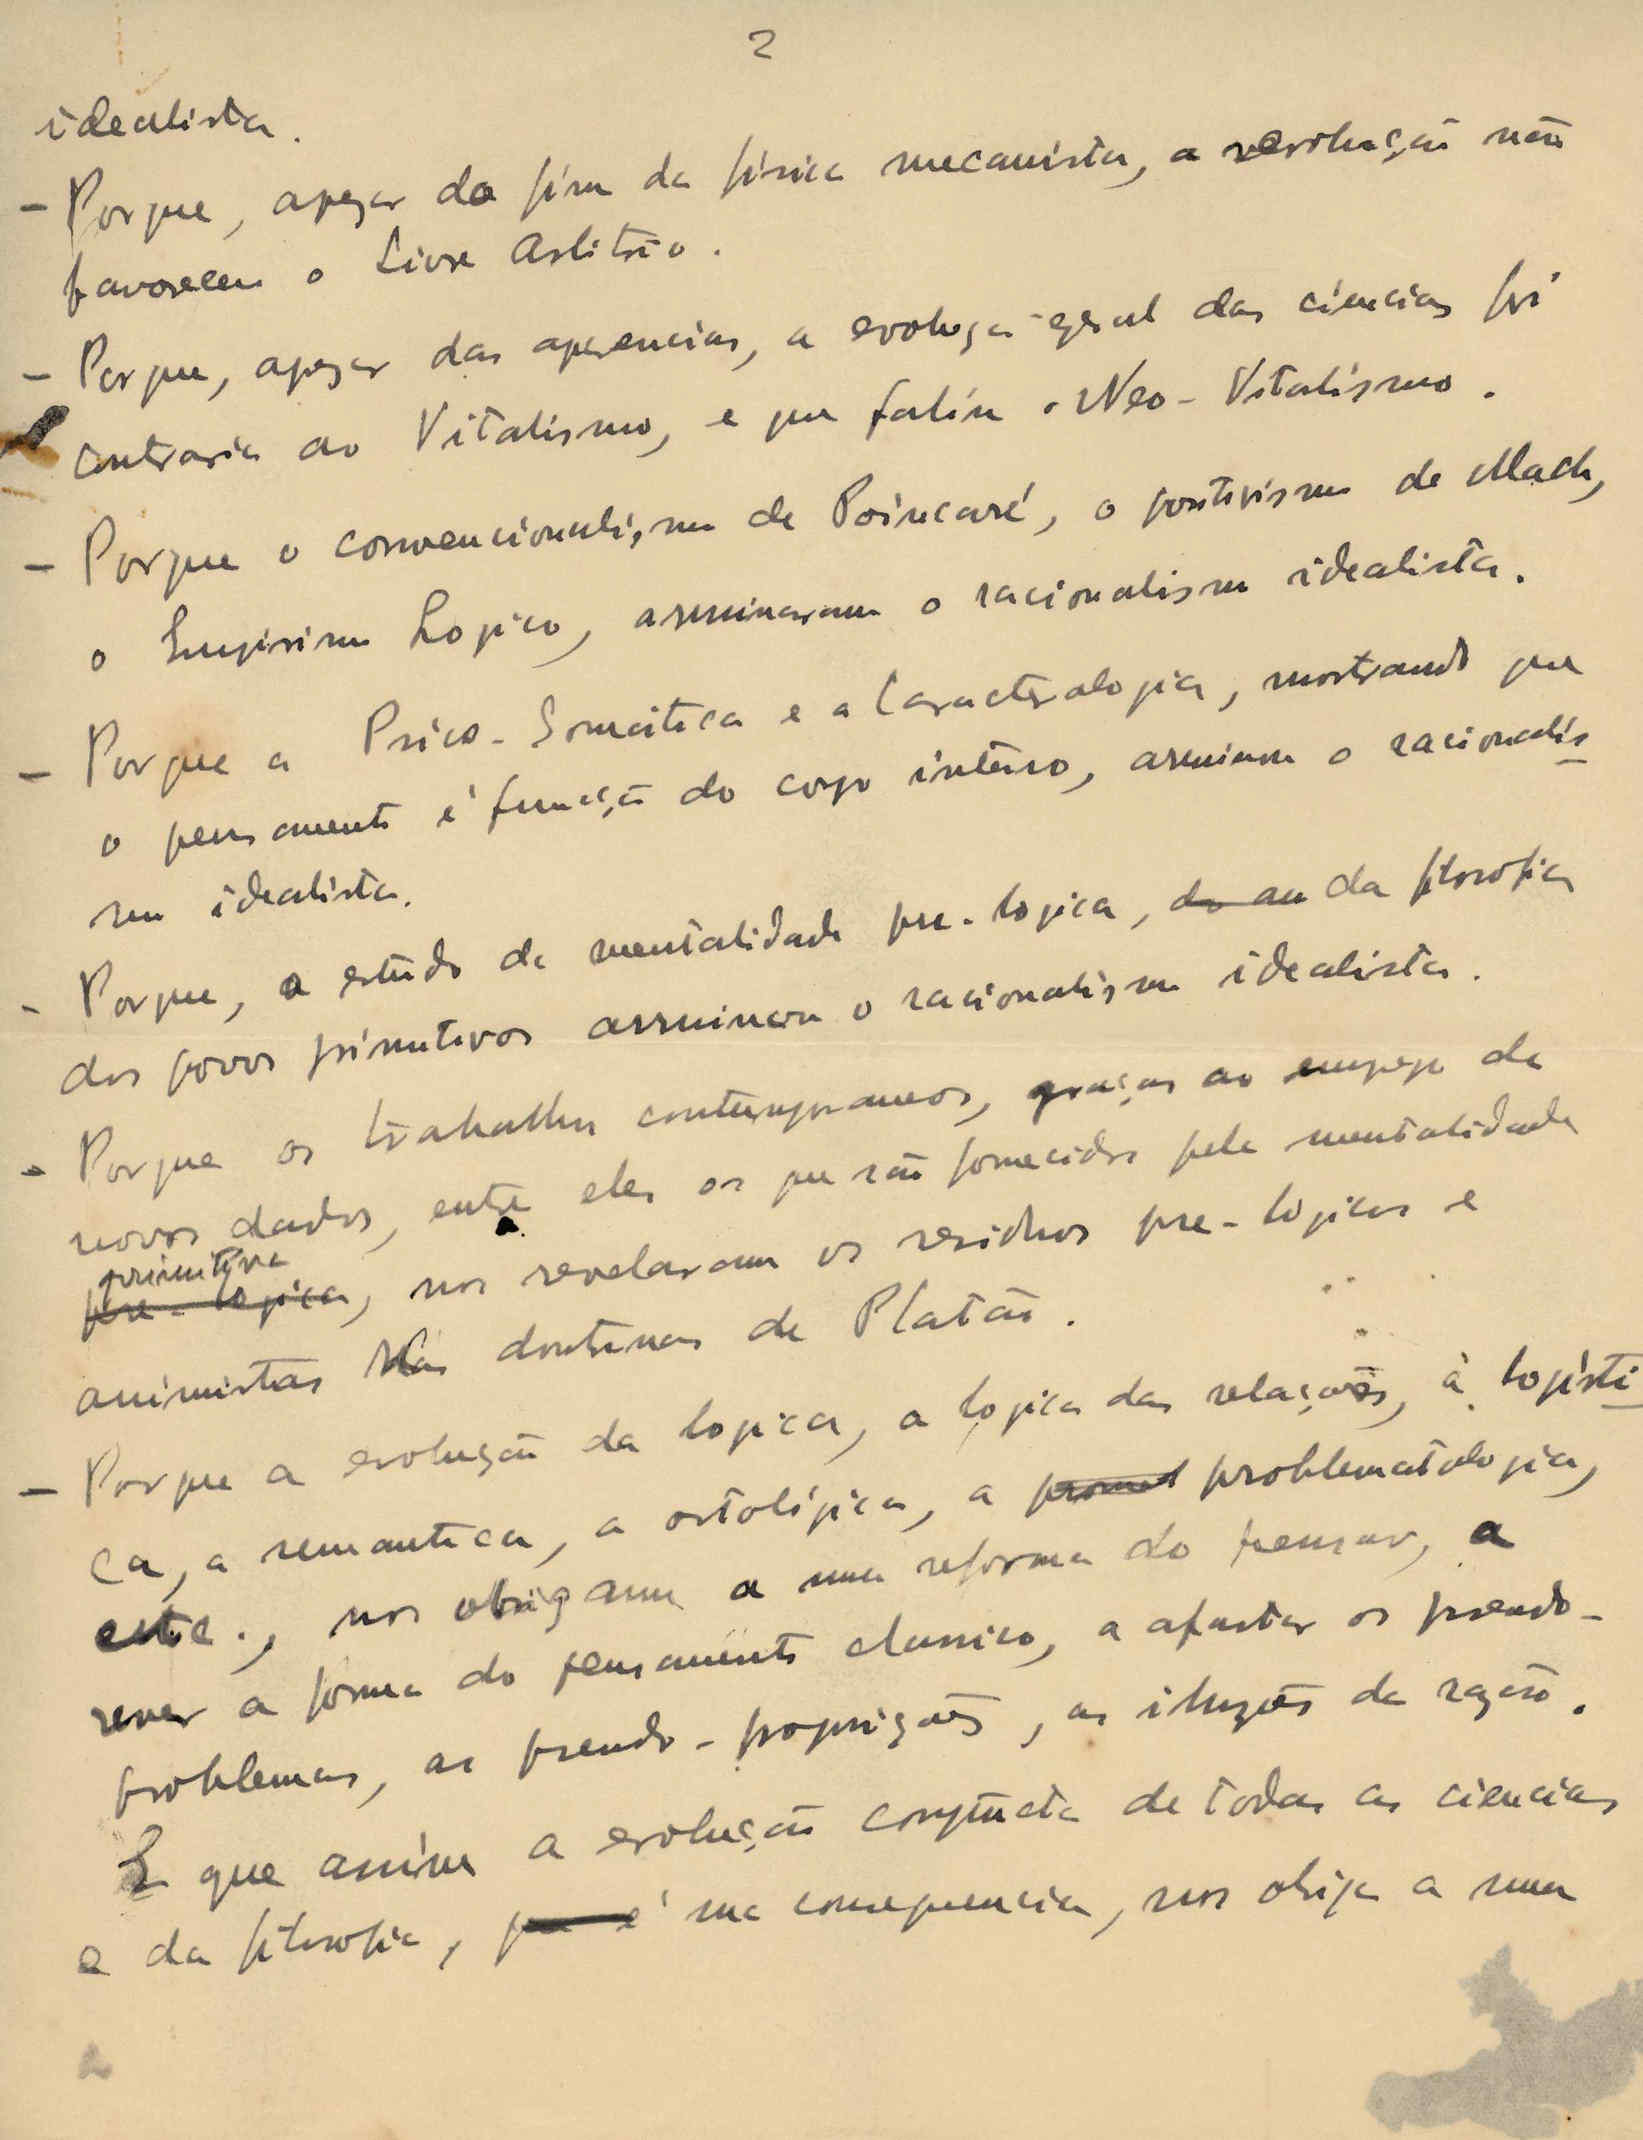 2
idealista.
- Porque, apezar do fim da fisica mecanista, a revolução não
favoreceu o Livre Arbitrio.
- Porque, apezar das aparencias, a evolução geral das ciencias foi
contraria ao Vitalismo, e que faliu o Neo-Vitalismo.
- Porque o convencionalismo de Poincaré, o positivismo de Mach,
o Empirismo Logico, arruinaram o racionalismo idealista.
- Porque a Psico-Somática e a Caracterologia, mostrando que
o pensamento é função do corpo inteiro, arruinam o racionalis
mo idealista.
- Porque, o estudo da mentalidade pre-logica, da filosofia
dos povos primitivos arruinou o racionalismo idealista.
- Porque os trabalhos contemporaneos, graças ao emprego de
novos dados, entre eles os que são fornecidos pela mentalidade
primitiva
pre-logica, nos revelaram os residuos pre-logicos e
animistas nas doutrinas de Platão.
- Porque a evolução da logica, a logica das relações, à logisti
ca, a semantica, a ortológica, a problematologia,
etc., nos obrigam a uma reforma do pensar, a
rever a forma do pensamento classico, a afastar os pseudo-
problemas, as pseudo-proposições, as iluzões da razão.
E que assim a evolução conjuncta de todas as ciencias
e da filosofia, na consequencia, nos obriga a uma